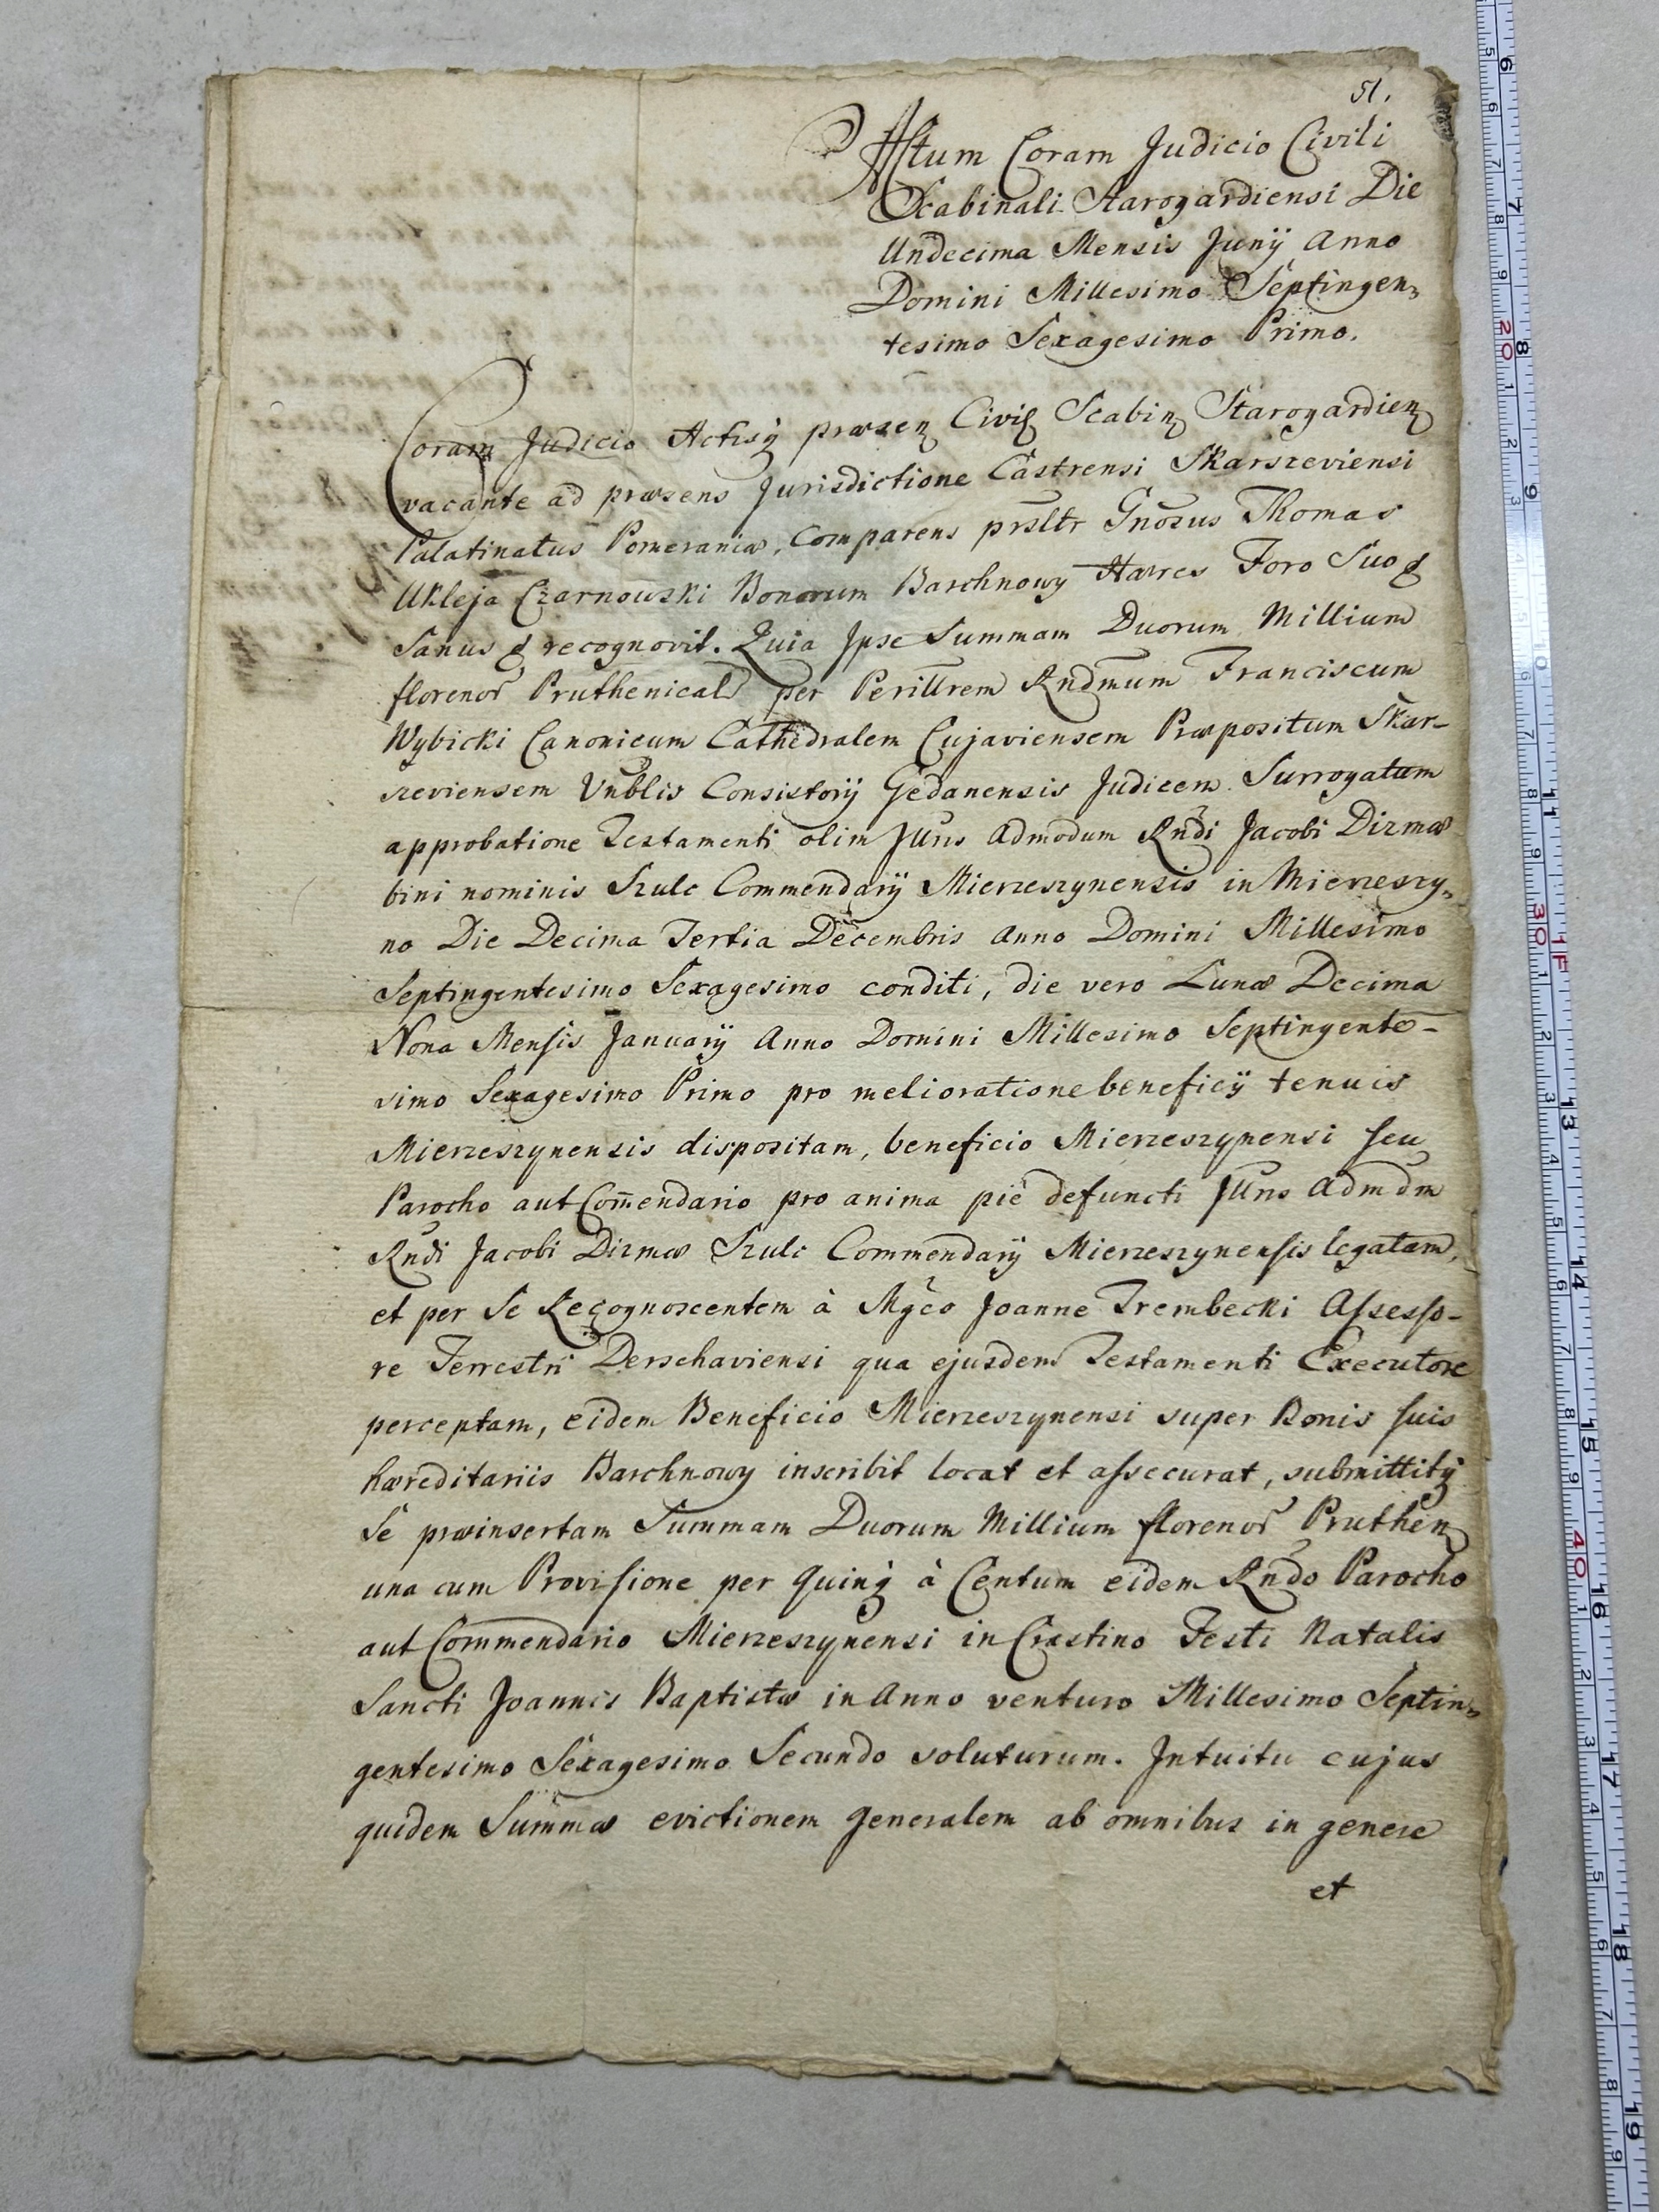 51.
Actum Coram Judicio Civili
Scabinali Starogardiensi Die
Undecima Mensis Junij Anno
Domini Millesimo Septingen„
tesimo Sexagesimo Primo.
Coram Judicio Actisq́ præsen Civil Scabin Starogardien
vacante ad præsens Jurisdictione Castrensi Skarszeviensi
Palatinatus Pomeraniæ, Comparens prsltr Gnosus Thomas
Ukleja Czarnowski Bonorum Barchnowy Hæres Foro Suo &
Sanus & recognovit. Quia Ipse Summam Duorum Millium
florenor Pruthenical per Perillrem Rndmum Franciscum
Wybicki Canonicum Cathedralem Cujaviensem Præpositum Skar-
szeviensem Vnblis Consistorij Gedanensis Judicem Surrogatum
approbatione Testamenti olim Illris Admodum Rndi Jacobi Dirmæ
bini nominis Szulc Commendarij Mierzeszynensis in Mierzeszy„
no Die Decima Tertia Decembris Anno Domini Millesimo
Septingentesimo Sexagesimo conditi, die vero Lunæ Decima
Nona Mensis January Anno Domini Millesimo Septingente-
simo Sexagesimo Primo pro melioratione beneficij tenuis
Mierzeszynensis dispositam, beneficio Mierzeszynensi seu
Parocho aut Com̄endario pro anima piè defuncti Illris Admdm
Rndi Jacobi Dirmæ Szulc Commendarij Mierzeszynensis legatam,
et per Se Recognoscentem à Mgco Joanne Trembecki Assesso-
re Terrestri Derschaviensi qua ejusdem Testamenti Executore
perceptam, eidem Beneficio Mierzeszynensi super Bonis suis
hæreditariis Barchnowy inscribit locat et assecurat, submittitq́
Se præinsertam Summam Duorum Millium florenor Pruthen
una cum Provisione per Quinq́ à Centum eidem Rndo Parocho
aut Commendario Mierzeszynensi in Crastino Festi Natalis
Sancti Joannis Baptistæ in Anno venturo Millesimo Septin„
gentesimo Sexagesimo Secundo soluturum. Intuitu cujus
quidem Summæ evictionem generalem ab omnibus in genere
et